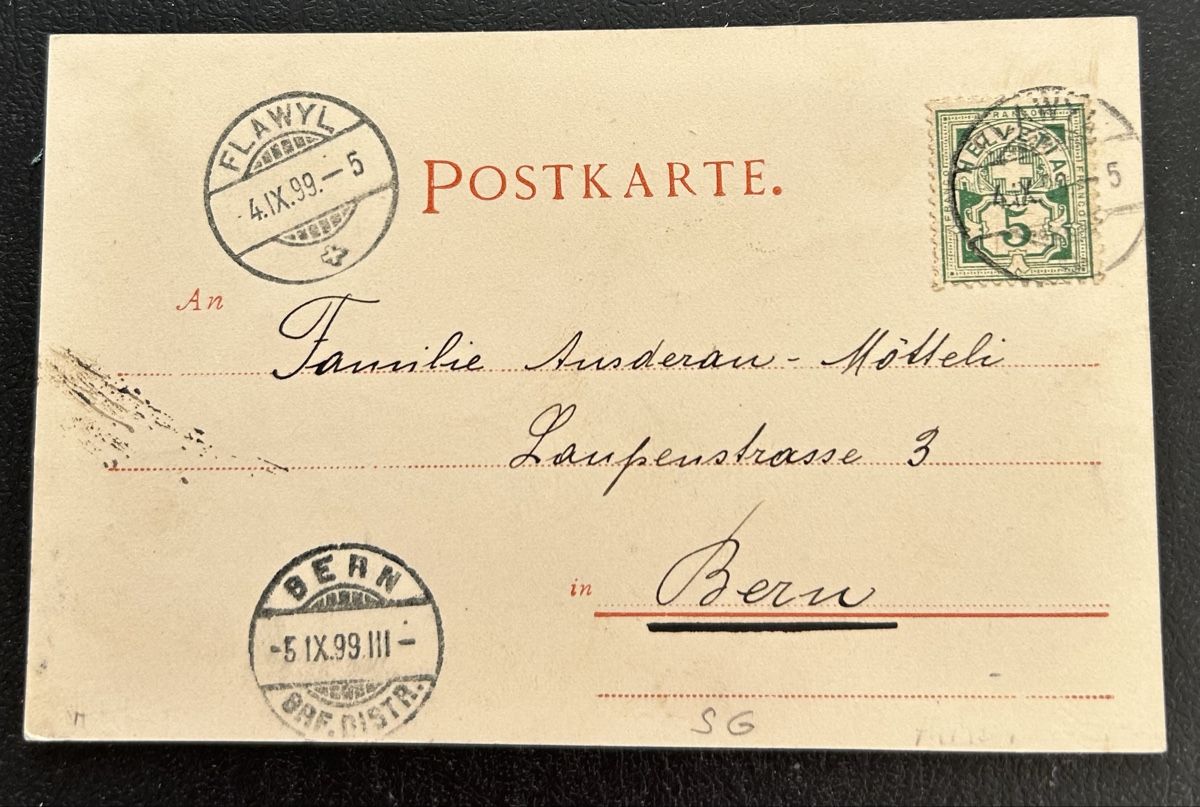 FLAWYL
- 4.IX.99.– 5
POSTKARTE.
HELVETIA
FRANCO
4.IX
5
5
An
Familie Ausderau - Mötteli
Laupenstrasse 3
in Bern
BERN
-5 IX.99 III –
BRF.DISTR.
SG